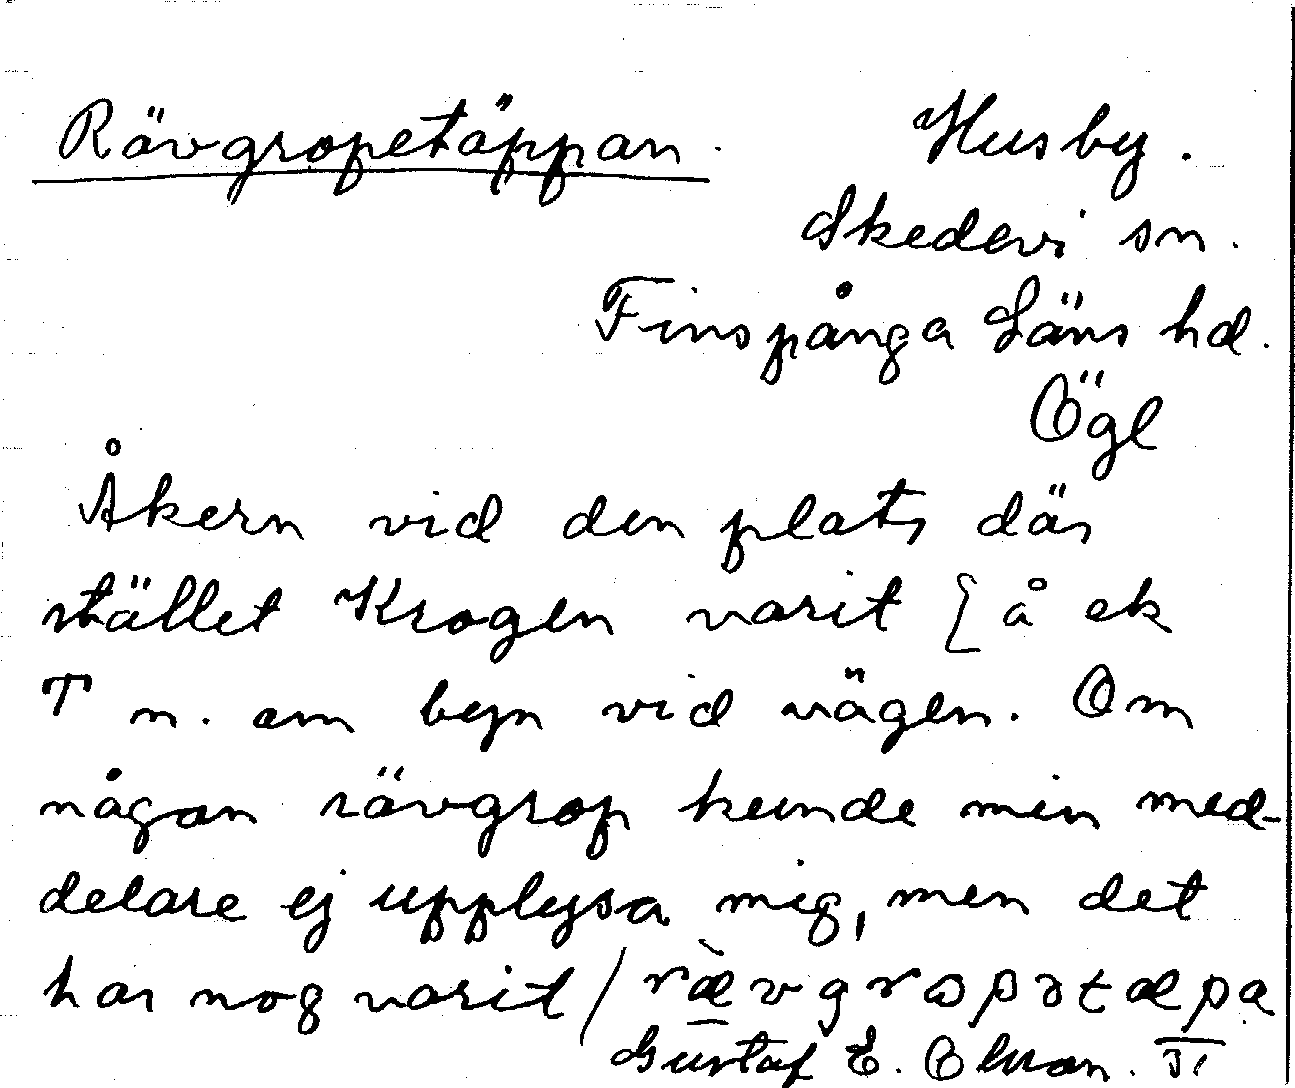 Rävgropetäppan. Husby.
Skedevi sn.
Finspånga Läns hd.
Ögl
Åkern vid den plats där
stället Krogen varit [å ek
T n. om byn vid vägen. Om
någon rävgrop kunde min med-
delare ej upplysa mig, men det
har nog varit / ræ̀vgrɷpətæpa
Gustaf E.